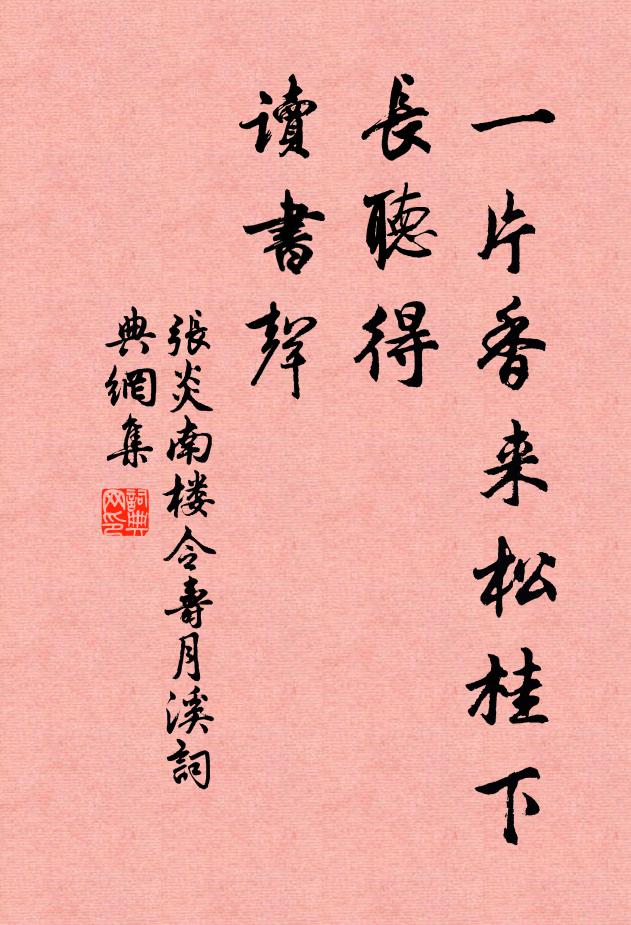 一片香来松桂下
長聽得
讀書聲
張炎南楼令壽月溪詞
典網集
詞典网印